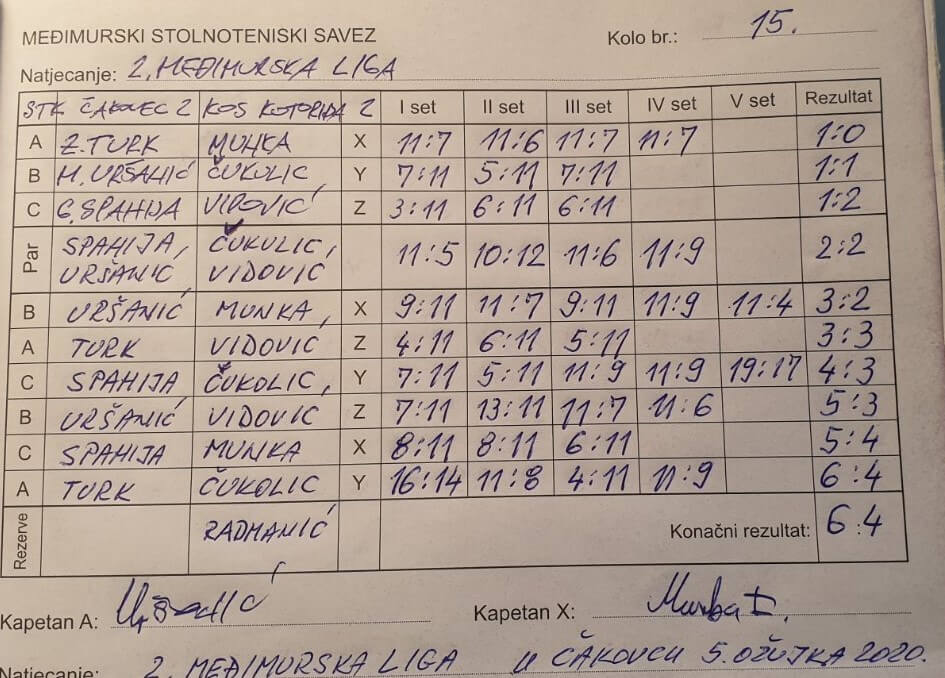 MEĐIMURSKI STOLNOTENISKI SAVEZ
Kolo br.: 15.
Natjecanje: 2. MEĐIMURSKA LIGA
STK ČAKOVEC 2 KOS KOTORIBA 2 I set II set III set IV set V set Rezultat
A Z. TURK MUNKA X 11:7 11:6 11:7 11:7 1:0
B M. URŠANIĆ ČUKULIC, Y 7:11 5:11 7:11 1:1
C G. SPAHIJA VIDOVIĆ Z 3:11 6:11 6:11 1:2
Par SPAHIJA, URŠANIC ČUKULIC, VIDOVIĆ 11:5 10:12 11:6 11:9 2:2
B URŠANIĆ MUNKA X 9:11 11:7 9:11 11:9 11:4 3:2
A TURK VIDOVIĆ Z 4:11 6:11 5:11 3:3
C SPAHIJA ČUKOLIC Y 7:11 5:11 11:9 11:9 19:17 4:3
B URŠANIĆ VIDOVIĆ Z 7:11 13:11 11:7 11:6 5:3
C SPAHIJA MUNKA X 8:11 8:11 6:11 5:4
A TURK ČUKOLIC Y 16:14 11:8 4:11 11:9 6:4
Rezerve RADMANIĆ Konačni rezultat: 6:4
Kapetan A: Uršanić Kapetan X:
Natjecanje: 2. MEĐIMURSKA LIGA U ČAKOVCU 5. OŽUJKA 2020.